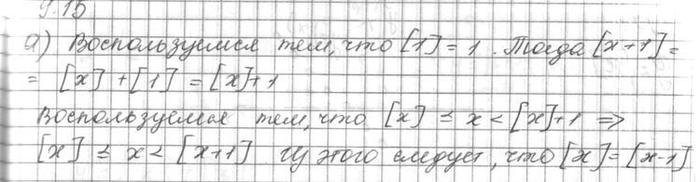 9.15
а) Воспользуемся тем, что [1] = 1. Тогда [x+1] =
= [x] + [1] = [x]+1
Воспользуемся тем, что [x] ≤ x < [x]+1 =>
[x] ≤ x < [x+1] Из этого следует, что [x] = [x-1]